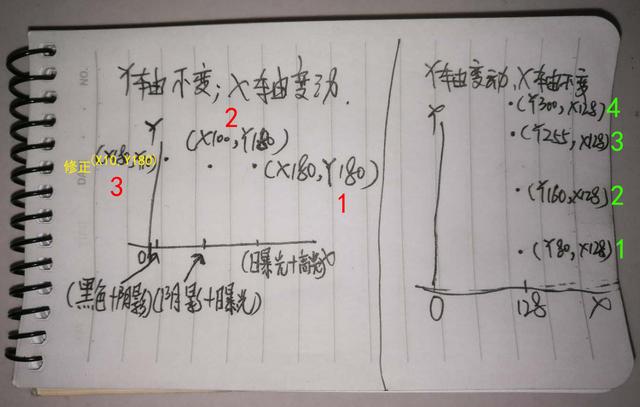 NO.
Y轴不变；X轴变动.
2
Y
(X100,Y180)
修正(X10,Y180)
3
(X180,Y180)
1
0
(曝光+高光)
X
(黑色+阴影)
(阴影+曝光)
Y轴变动、X轴不变
Y
(Y300,X128)
4
(Y255,X128)
3
(Y160,X128)
2
(Y80,X128)
1
0
128
X